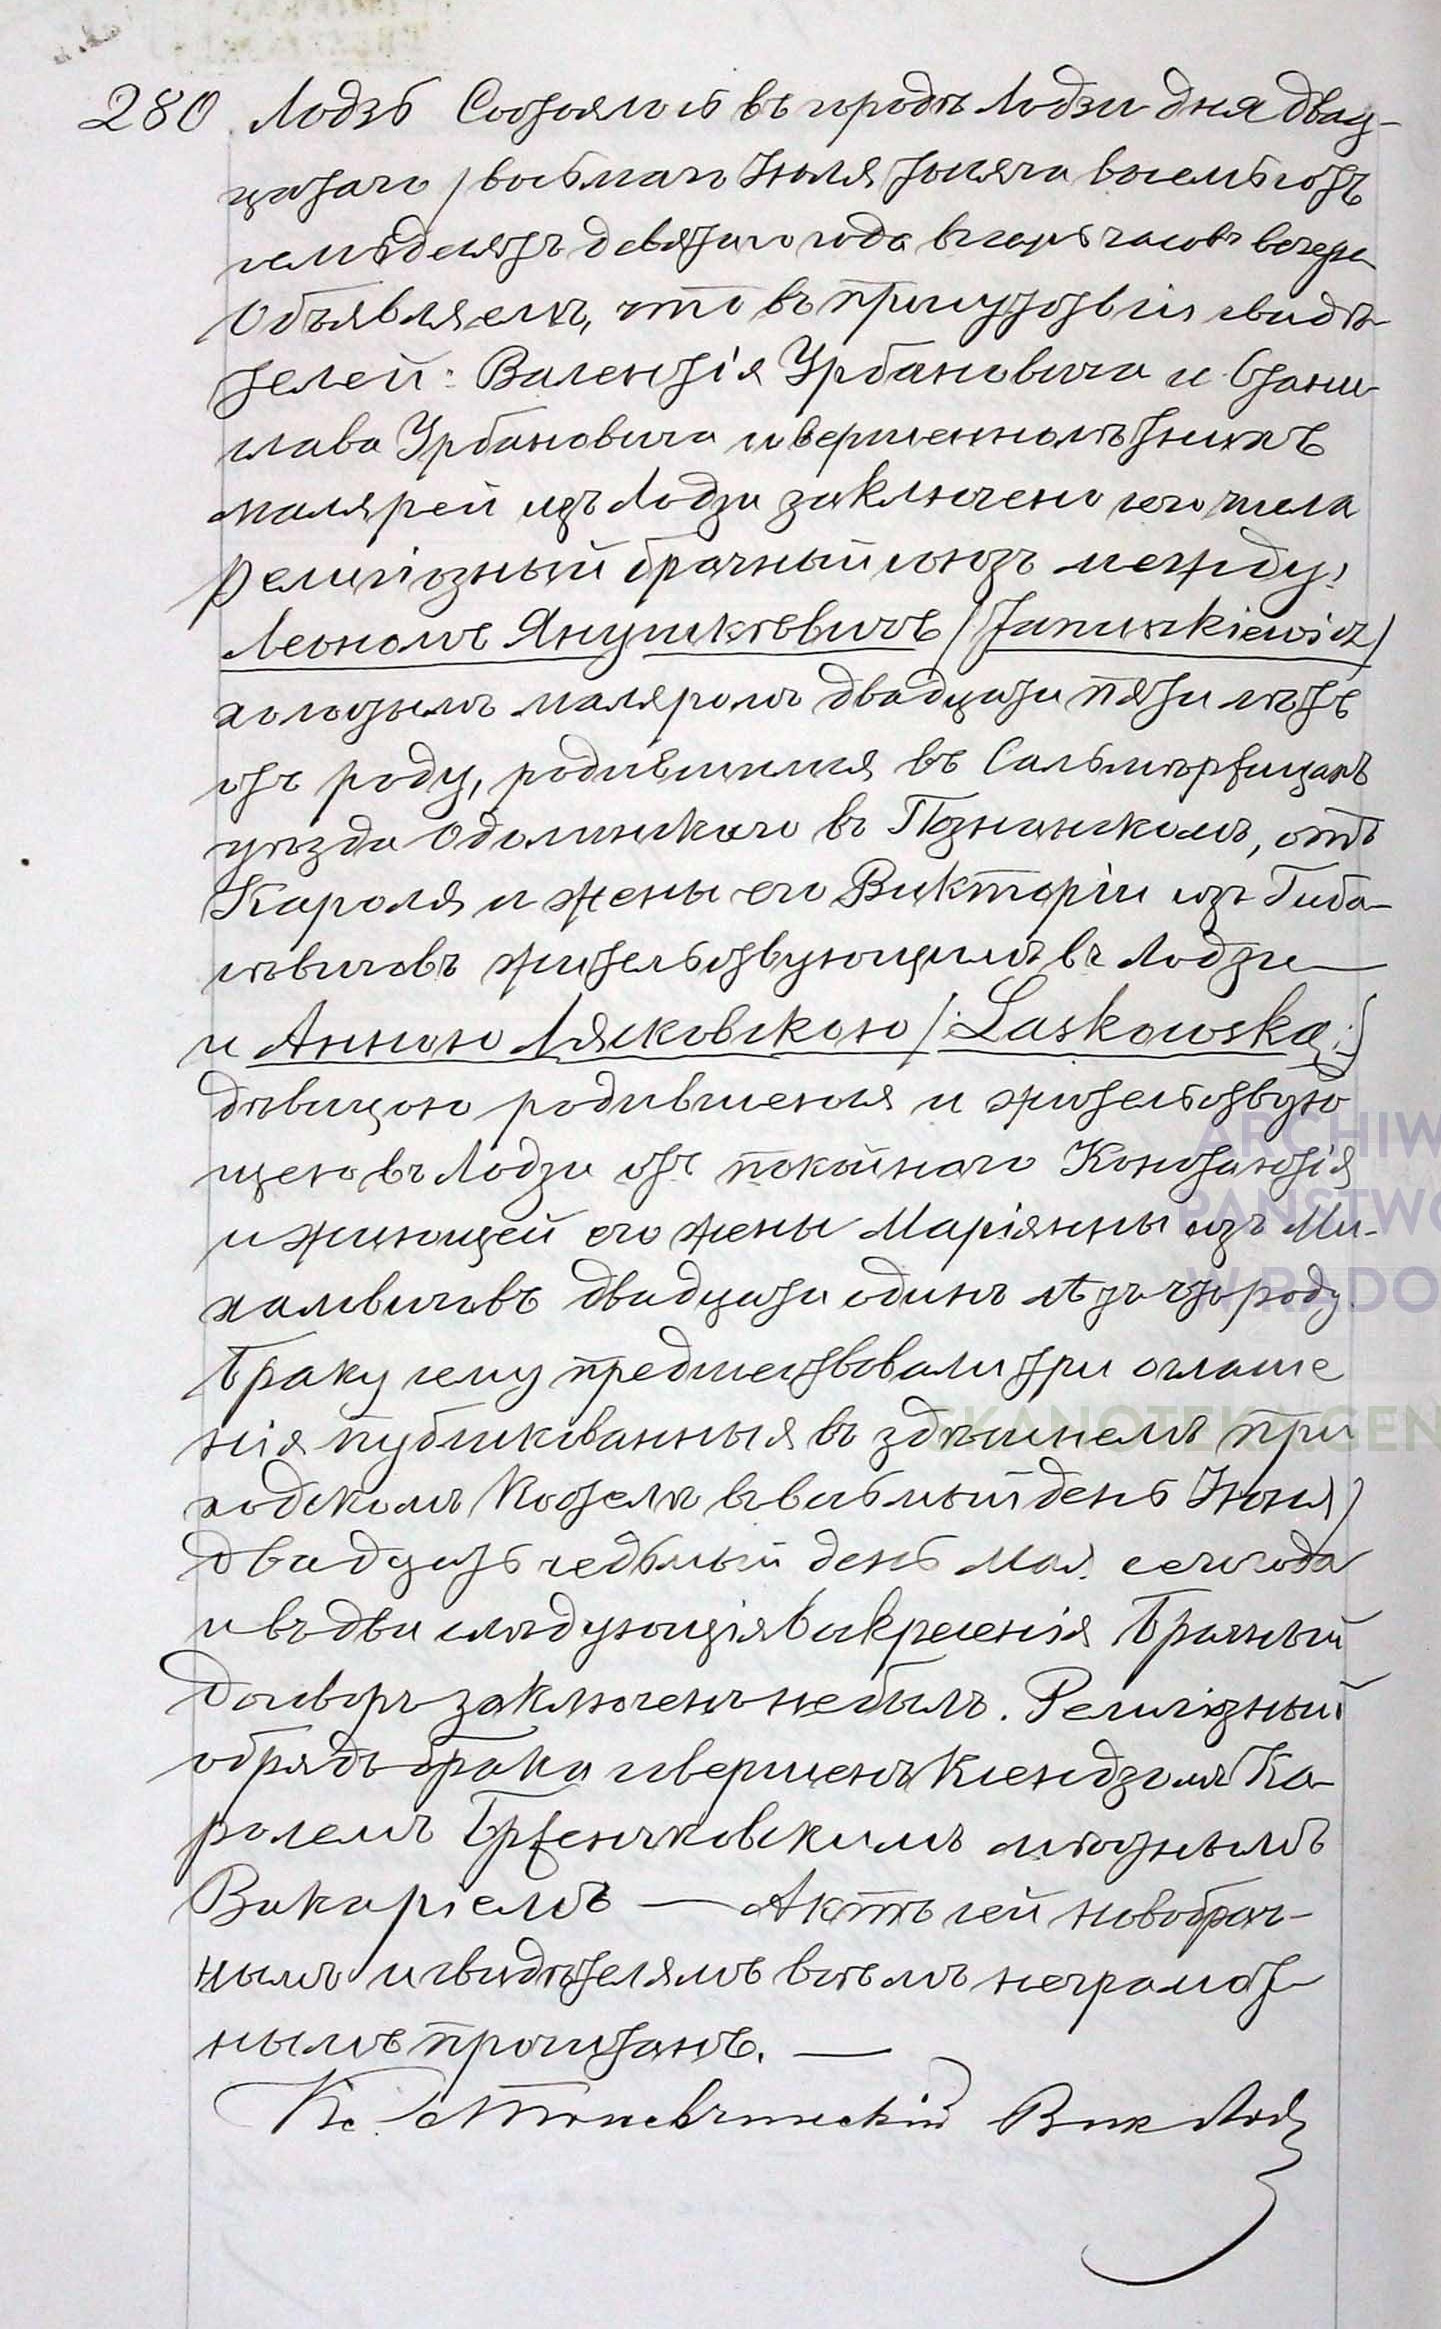 280 Лодзь Состоялось въ городѣ Лодзи дня двад-
цатаго / восьмаго Іюля тысяча восемьсотъ
семьдесятъ девятаго года въ семь часовъ вечера
Объявляемъ, что въ присутствіи свидѣ-
телей: Валентія Урбановича и Стани-
слава Урбановича совершеннолѣтнихъ
малярей изъ Лодзи заключено сего числа
религіозный брачный союзъ между:
Леономъ Янушкѣевичъ / Januszkiewicz /
холостымъ маляромъ двадцати пяти лѣтъ
отъ роду, родившимся въ Сальмѣржицахъ
уѣзда Одолинскаго въ Познанскомъ, отъ
Кароля и жены его Викторіи изъ
жительствующимъ въ Лодзи —
и Анною Лясковскою /: Laskowska :/
дѣвицою родившеюся и жительствую
щею въ Лодзи отъ покойнаго Константія
и живющей его жены Маріянны изъ Ми-
халовичовъ двадцати одинъ лѣтъ отъ роду.
Браку сему предшествовали три оглаше
нія публикованныя въ здѣшнемъ при
ходскомъ Костелѣ въ восьмый день Іюня /
двадцать седьмый день Мая сего года
и въ два слѣдующія Воскресенія Брачный
договоръ заключенъ небылъ. Религіозный
обрядъ брака совершенъ Ксендзомъ Ка-
ролемъ мѣстнымъ
Викаріемъ — Актъ сей новобрач-
нымъ и свидѣтелямъ всѣмъ неграмот-
нымъ прочитанъ. —
Кс. Вик Лод
ARCHIW
PAŃSTWO
W RADO
SKANOTEKA GEN